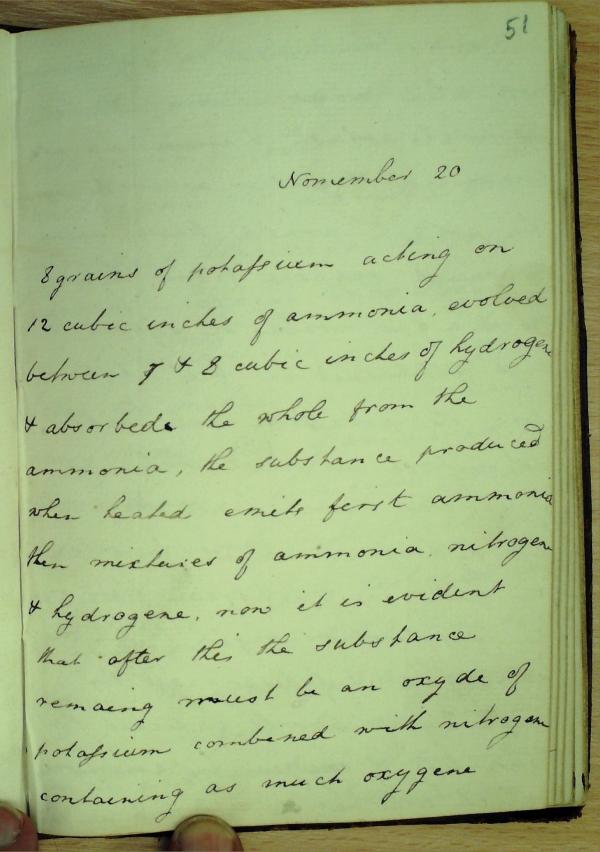 51
Nomember 20
8 grains of potassium acting on
12 cubic inches of ammonia, evolved
between 7 & 8 cubic inches of hydrogene
& absorbed the whole from the
ammonia, the substance produced
when heated emits first ammonia
then mixtures of ammonia, nitrogene
& hydrogene, now it is evident
that after this the substance
remaing must be an oxyde of
potassium combined with nitrogene
containing as much oxygene